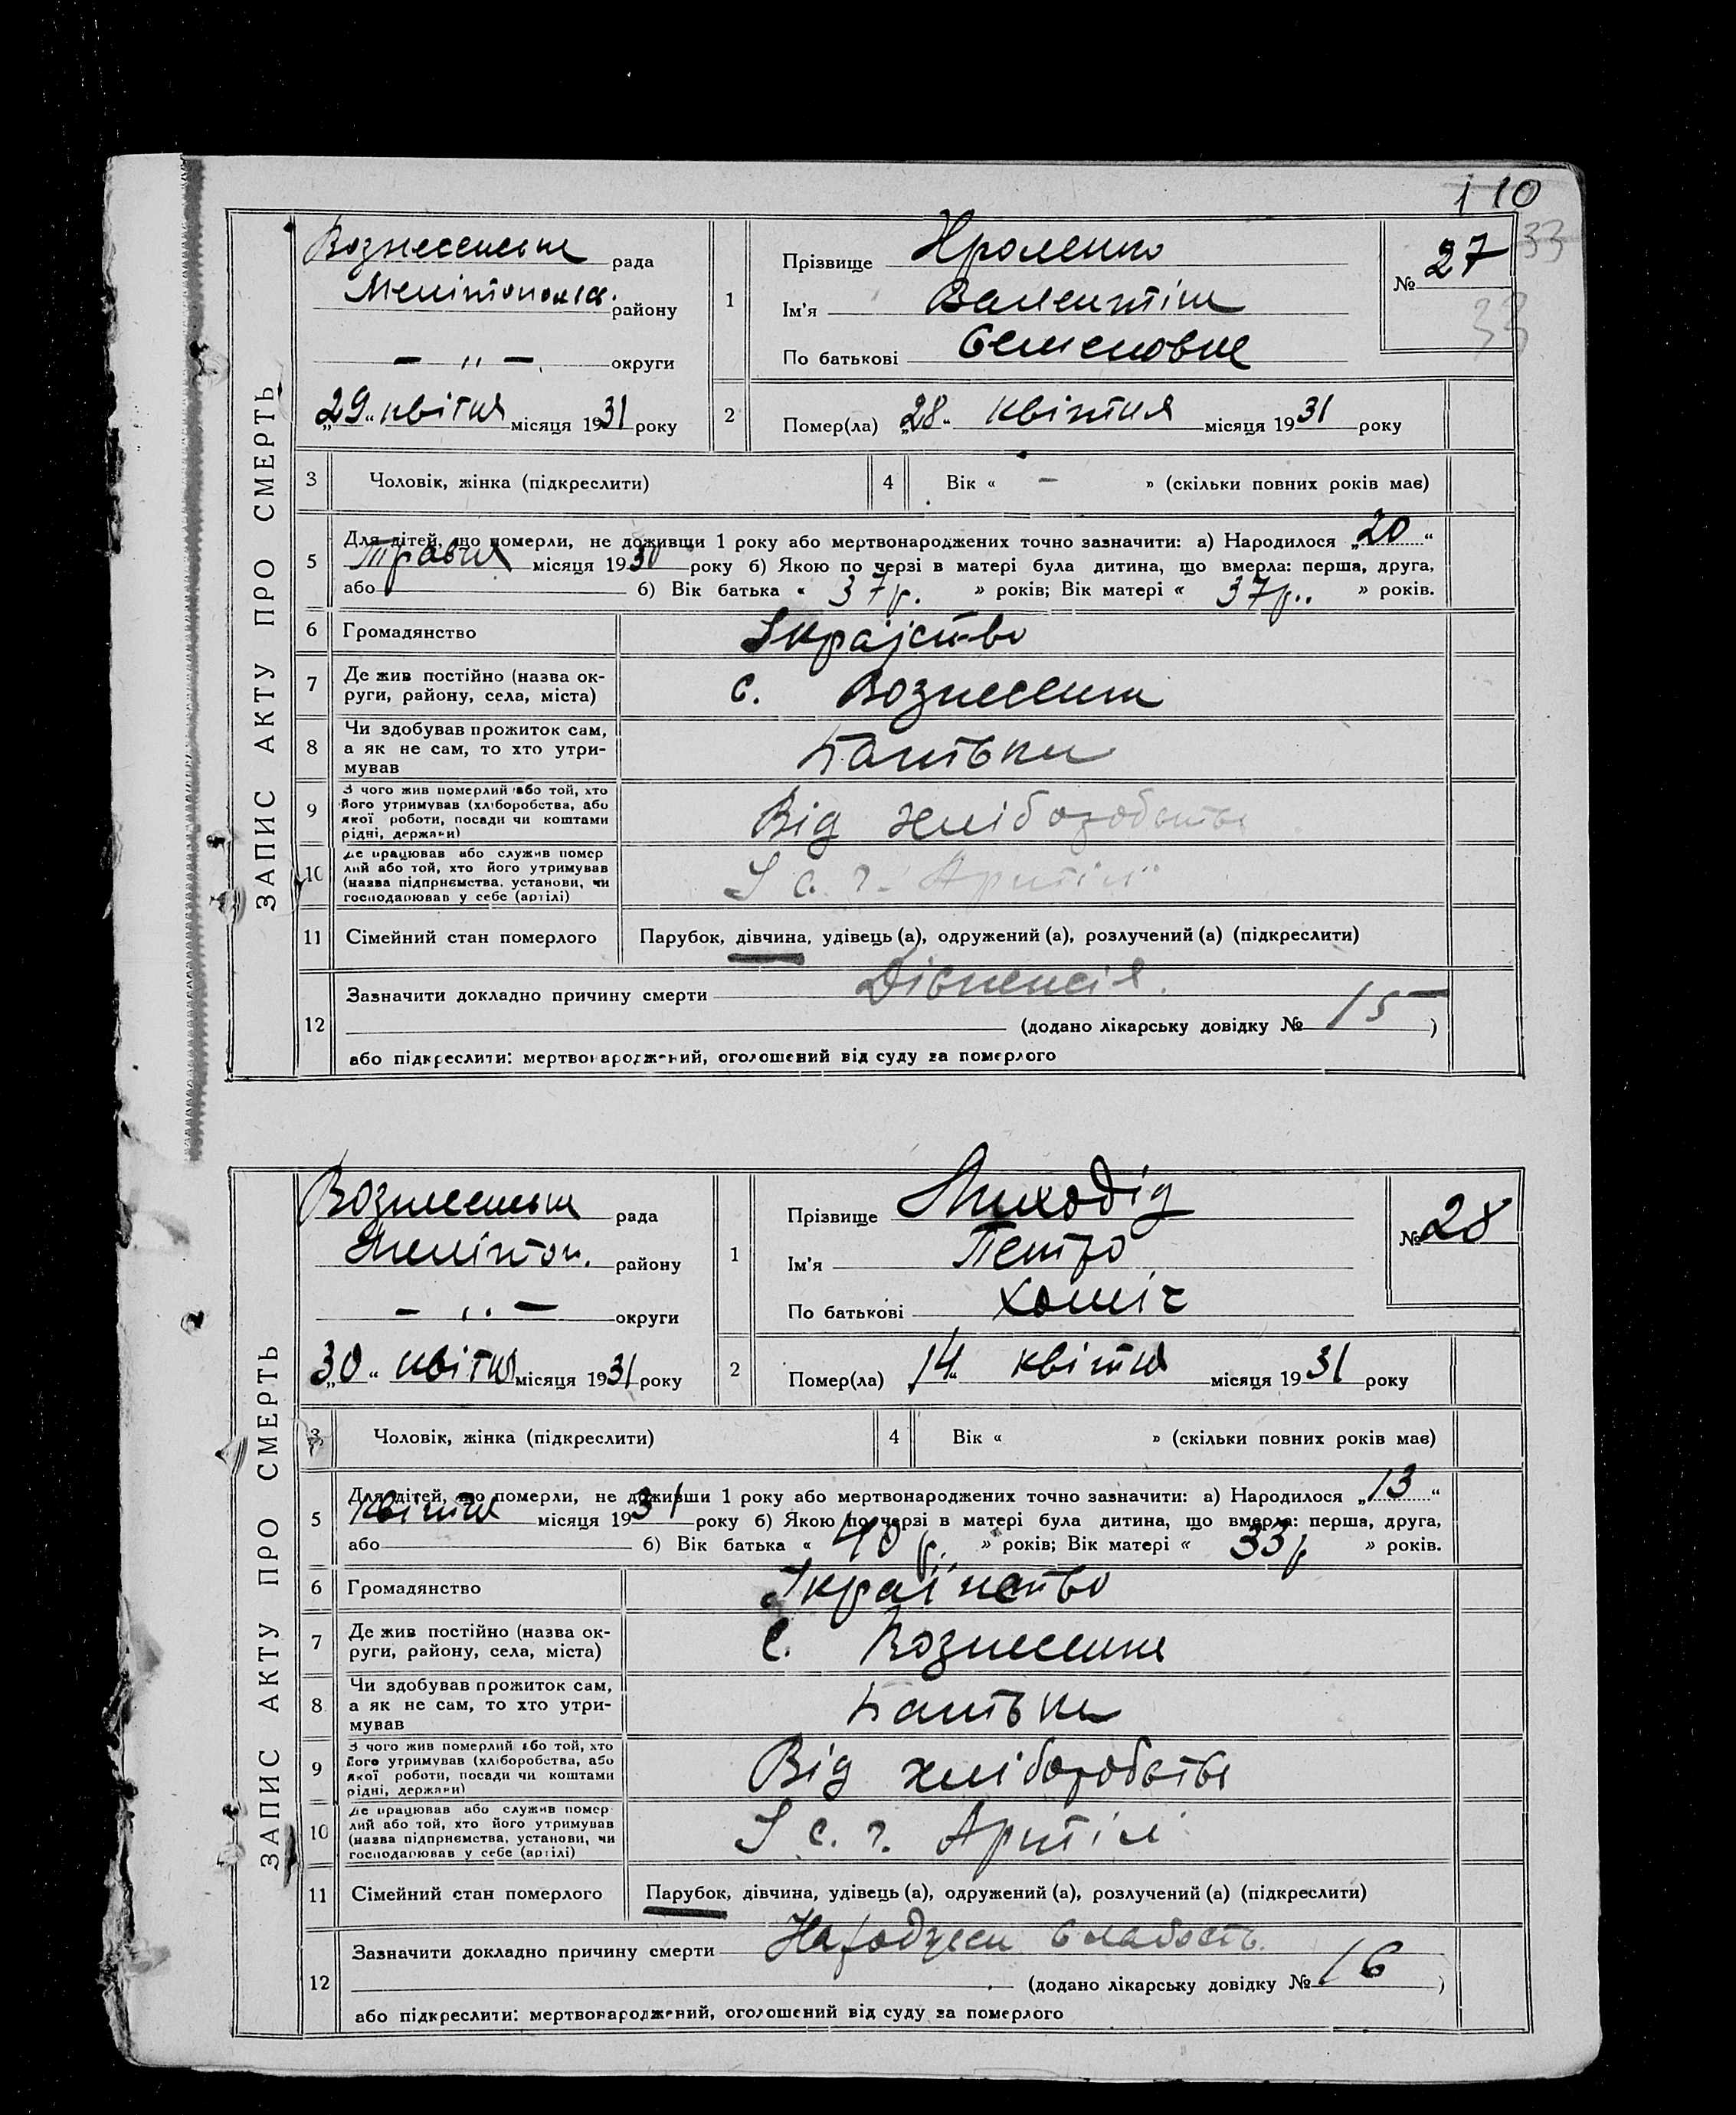 110
33
33
ЗАПИС АКТУ ПРО СМЕРТЬ
Вознесенська рада
Мелітопольск. району
— „ — округи
„29“ квітня місяця 1931 року
1
Прізвище
Ім'я Валентіна
По батькові Семеновна
№ 27
2
Помер(ла) „28“ квітня місяця 1931 року
3 Чоловік, жінка (підкреслити)
4 Вік « — » (скільки повних років має)
5 Для дітей, що померли, не доживши 1 року або мертвонароджених точно зазначити: а) Народилося „20“
Травня місяця 1930 року б) Якою по черзі в матері була дитина, що вмерла: перша, друга,
або б) Вік батька « 37 р. » років; Вік матері « 37 р. » років.
6 Громадянство
7 Де жив постійно (назва ок-
руги, району, села, міста)
с. Вознесенка
8 Чи здобував прожиток сам,
а як не сам, то хто утри-
мував
Батьки
9 З чого жив померлий або той, хто
його утримував (хліборобства, або
якої роботи, посади чи коштами
рідні, держави)
Від хліборобства
10 Де працював або служив помер
лий або той, хто його утримував
(назва підприємства, установи, чи
господарював у себе (артілі)
У с. г. Артіл
11 Сімейний стан померлого
Парубок, дівчина, удівець (а), одружений (а), розлучений (а) (підкреслити)
12 Зазначити докладно причину смерти Діспепсія.
(додано лікарську довідку № 15)
або підкреслити: мертвонароджений, оголошений від суду за померлого
ЗАПИС АКТУ ПРО СМЕРТЬ
Вознесенська рада
Мелітоп. району
— „ — округи
„30“ квітня місяця 1931 року
1
Прізвище Лиходід
Ім'я Петро
По батькові Хоміч
№ 28
2
Помер(ла) „14“ квітня місяця 1931 року
3 Чоловік, жінка (підкреслити)
4 Вік « » (скільки повних років має)
5 Для дітей, що померли, не доживши 1 року або мертвонароджених точно зазначити: а) Народилося „13“
Квітня місяця 1931 року б) Якою по черзі в матері була дитина, що вмерла: перша, друга,
або б) Вік батька « 40 р. » років; Вік матері « 33 р » років.
6 Громадянство Українство
7 Де жив постійно (назва ок-
руги, району, села, міста)
с. Вознесенка
8 Чи здобував прожиток сам,
а як не сам, то хто утри-
мував
Батьки
9 З чого жив померлий або той, хто
його утримував (хліборобства, або
якої роботи, посади чи коштами
рідні, держави)
Від хліборобства
10 Де працював або служив помер
лий або той, хто його утримував
(назва підприємства, установи, чи
господарював у себе (артілі)
У с. г. Артілі
11 Сімейний стан померлого
Парубок, дівчина, удівець (а), одружений (а), розлучений (а) (підкреслити)
12 Зазначити докладно причину смерти слабость.
(додано лікарську довідку № 16)
або підкреслити: мертвонароджений, оголошений від суду за померлого